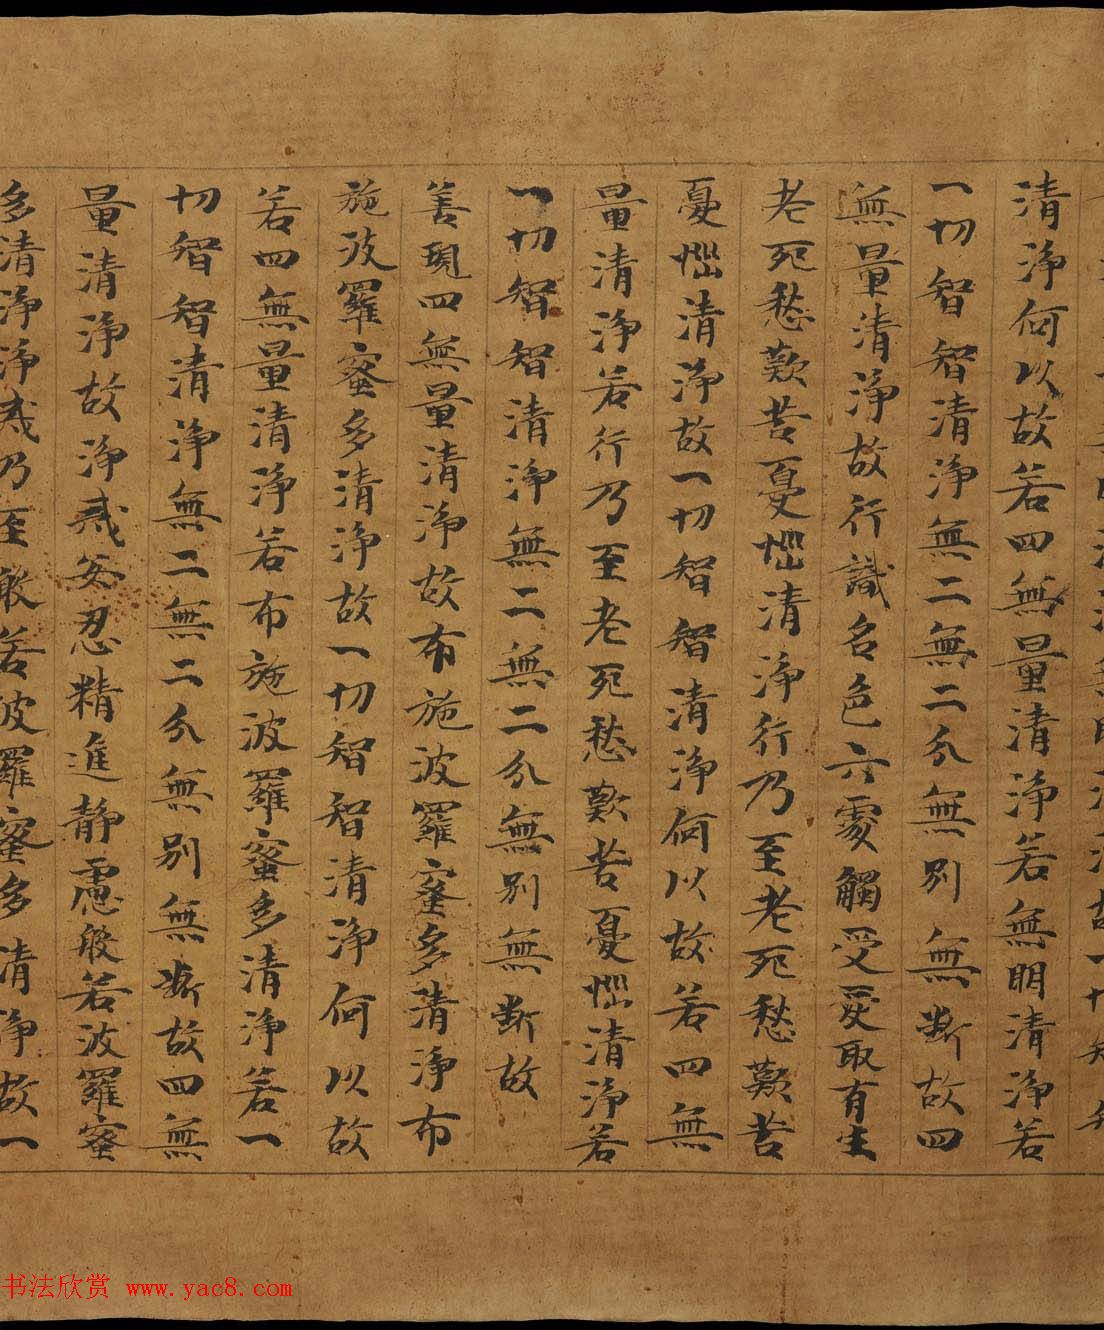 清淨何以故若四無量清淨若無明清淨若
一切智智清淨無二無二分無別無斷故四
無量清淨故行識名色六處觸受愛取有生
老死愁歎苦憂惱清淨行乃至老死愁歎苦
憂惱清淨故一切智智清淨何以故若四無
量清淨若行乃至老死愁歎苦憂惱清淨若
一切智智清淨無二無二分無別無斷故
善現四無量清淨故布施波羅蜜多清淨布
施波羅蜜多清淨故一切智智清淨何以故
若四無量清淨若布施波羅蜜多清淨若一
切智智清淨無二無二分無別無斷故四無
量清淨故淨戒安忍精進静慮般若波羅蜜
多清淨淨戒乃至般若波羅蜜多清淨故一
书法欣赏 www.yac8.com